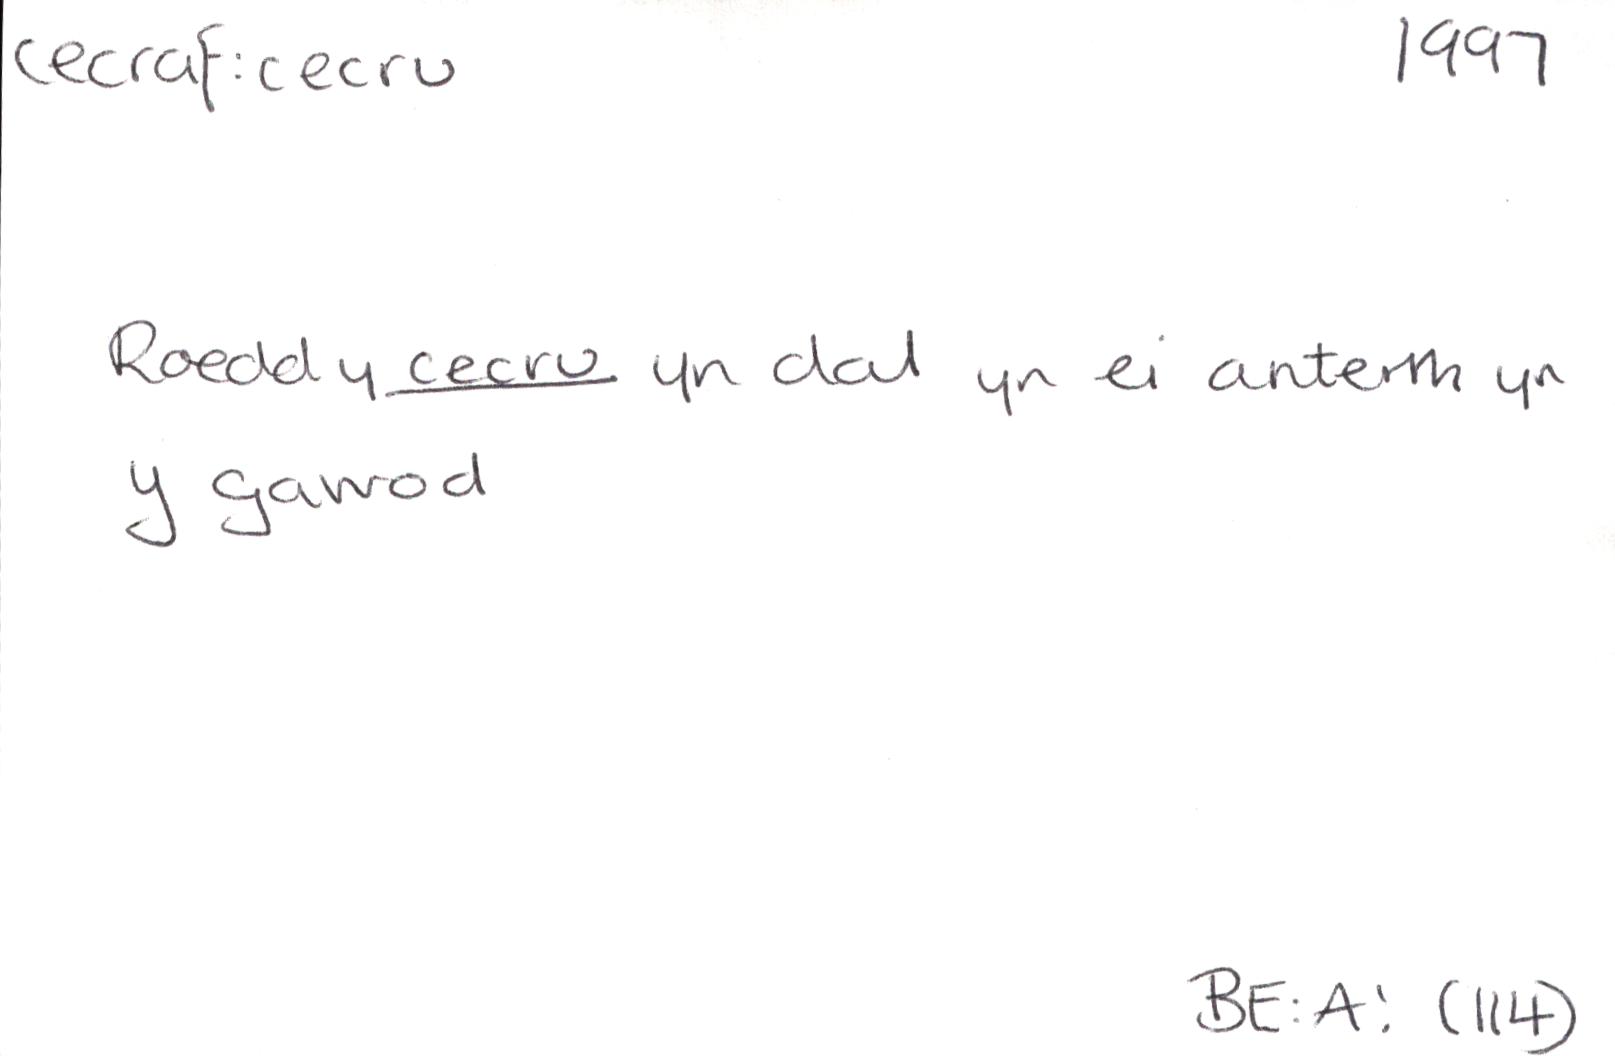 cecraf: cecru 1997
Roedd y cecru yn dal yn ei anterth yn
y gawod
BE: A! (114)